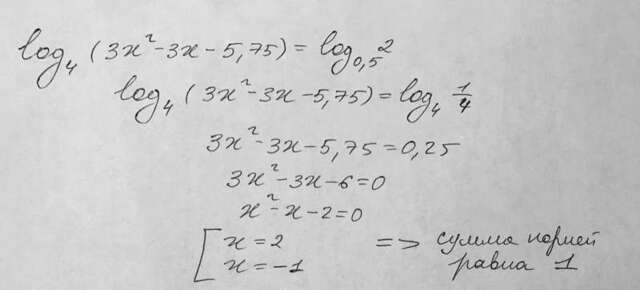 log₄ (3x²-3x-5,75) = log₀,₅ 2
log₄ (3x²-3x-5,75) = log₄ 1/4
3x²-3x-5,75 = 0,25
3x²-3x-6=0
x²-x-2=0
[ x=2 => сумма корней
x=-1 равна 1